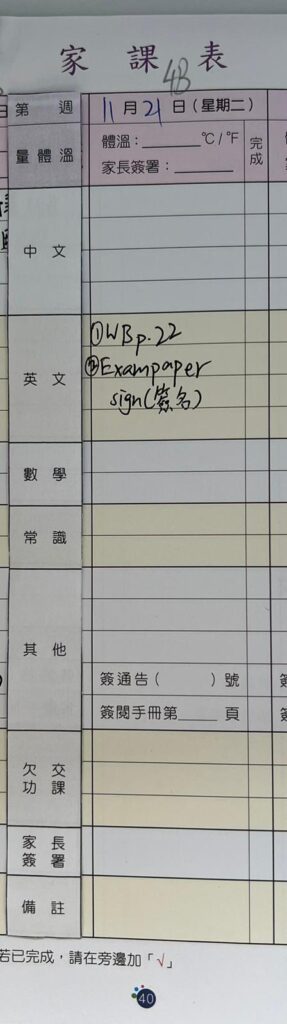 家課表
4B
第 週
11月21日(星期二)
量體溫
體溫：______℃/℉
家長簽署：______
完成
中文
英文
①WB p.22
②Exampaper
sign(簽名)
數學
常識
其他
簽通告( )號
簽閱手冊第____頁
欠交
功課
家長
簽署
備註
若已完成，請在旁邊加「√」
40